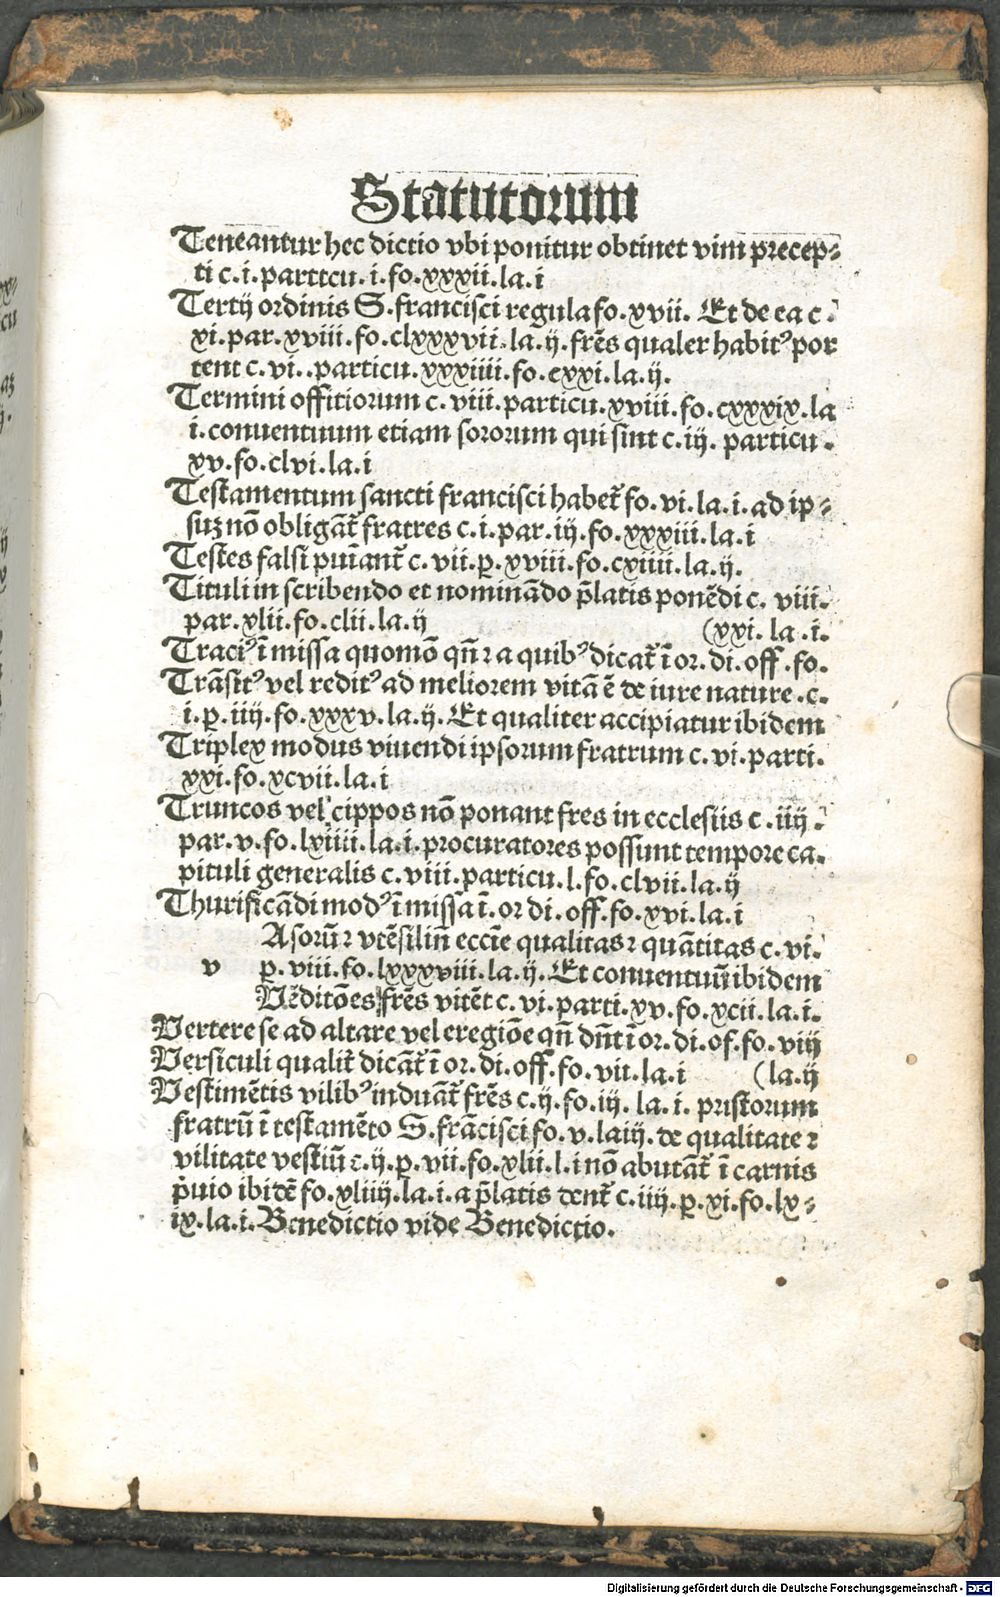 Statutorum
Teneantur hec dictio vbi ponitur obtinet vim precep⸗
ti c.i.particu.i.fo.xxxii.la.i
Tertij ordinis S.francisci regula fo.xvii. Et de ea c.
xi.par.xviii.fo.clxxxvii.la.ij.frēs qualer habitꝰ por
tent c.vi..particu.xxxiiii.fo.cxxi.la.ij.
Termini offitiorum c.viii.particu.xviii.fo.cxxxix.la
i.conuentuum etiam sororum qui sint c.iij. particu.
xv.fo.clvi.la.i
Testamentum sancti francisci habet᷑ fo.vi.la.i.ad ip⸗
suꝫ nō obligāt᷑ fratres c.i.par.iij.fo.xxxiii.la.i
Testes falsi puīant᷑ c.vii.p̲.xviii.fo.cxiiii.la.ij.
Tituli in scribendo et nominādo p̄latis ponēdi c. viii.
par.xlii.fo.clii.la.ij (xxi.la.i.
Traciꝰ ī missa quomō qn̄ ꝛ a quibꝰ dicat᷑ ī or.di.off.fo.
Trāsitꝰ vel reditꝰ ad meliorem vitā ē de iure nature.c.
i.p̲.iiij.fo.xxxv.la.ij.Et qualiter accipiatur ibidem
Triplex modus viuendi ipsorum fratrum c.vi.parti.
xxi.fo.xcvii.la.i
Truncos vel cippos nō ponant fres in ecclesiis c.iiij.
par.v.fo.lxiiii.la.i.procuratores possunt tempore ca.
pituli generalis c.viii.particu.l.fo.clvii.la.ij
Thurificādi modꝰ ī missa ī.or di.off.fo.xvi.la.i
Asorū ꝛ vtēsiliū eccīe qualitas ꝛ quātitas c.vi.
v p̲.viii.fo.lxxxviii.la.ij.Et conuentuū ibidem
Vēditōes frēs vitēt c.vi.parti.xv.fo.xcii.la.i.
Vertere se ad altare vel eregiōe qn̄ dn̄t ī or.di.of.fo.viij
Versiculi qualit᷑ dicāt᷑ ī or.di.off.fo.vii.la.i (la.ij
Vestimētis vilibꝰ induāt᷑ frēs c.ij.fo.iij.la.i. pristorum
fratrū ī testamēto S.frācisci fo.v.la iij.de qualitate ꝛ
vilitate vestiū c.ij.p̲.vii.fo.xlii.l.i nō abutāt᷑ ī carnis
p̄uio ibidē fo.xliiij.la.i.a p̄latis dent᷑ c.iiij.p̲.xi.fo.lx⸗
ix.la.i.Benedictio vide Benedictio.
Digitalisierung gefördert durch die Deutsche Forschungsgemeinschaft - DFG